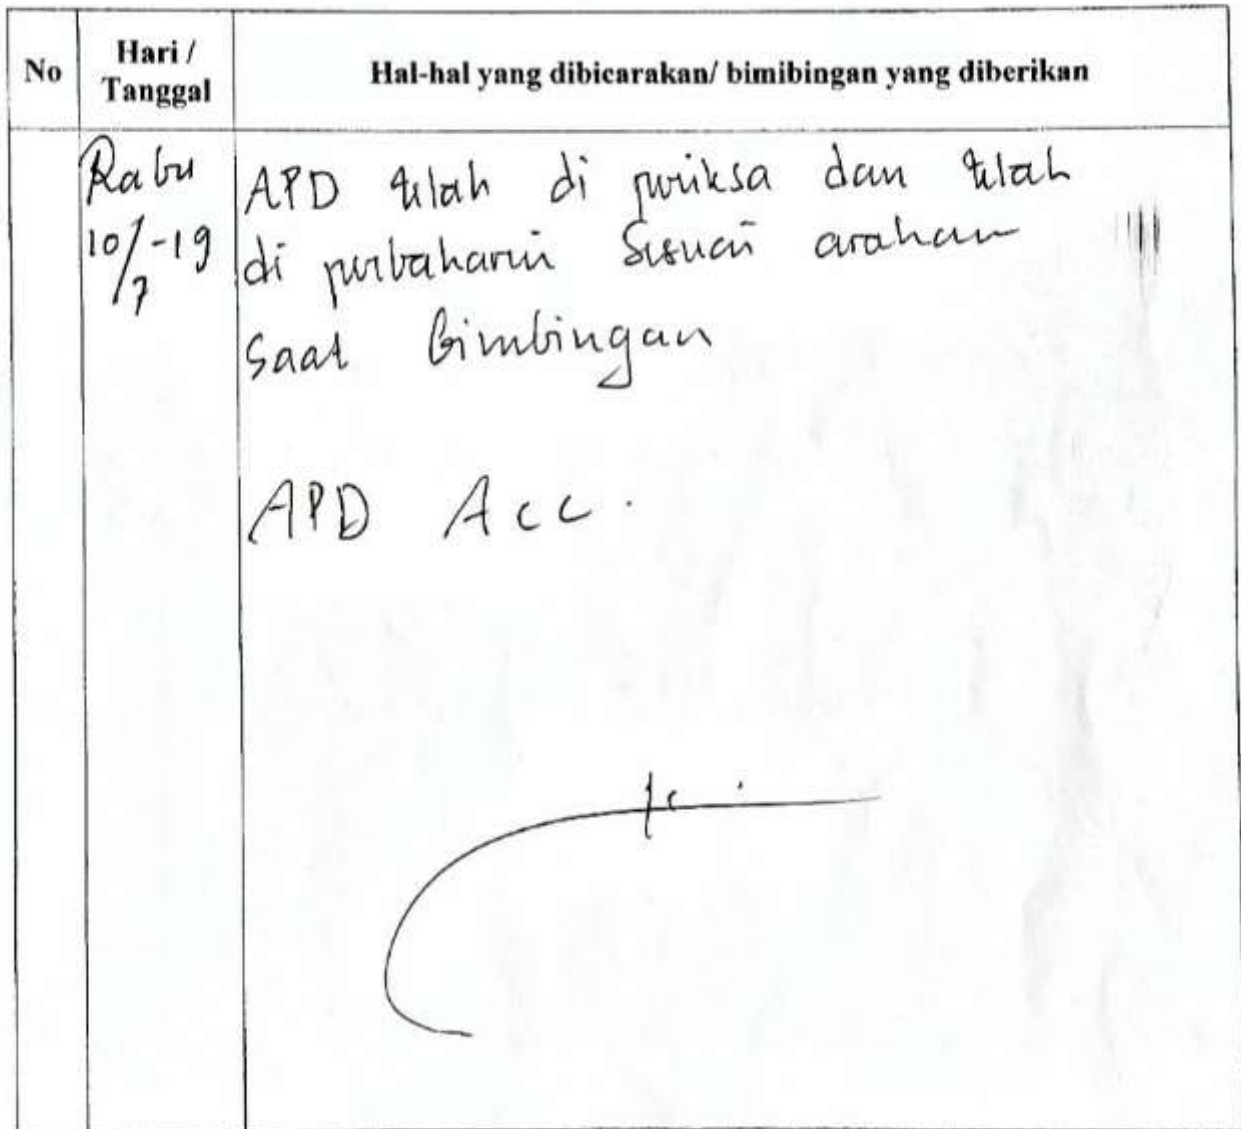 No
Hari /
Tanggal
Hal-hal yang dibicarakan/ bimibingan yang diberikan
Rabu
10/7-19
APD telah di periksa dan telah
di perbaharui sesuai arahan
saat bimbingan
APD Acc.